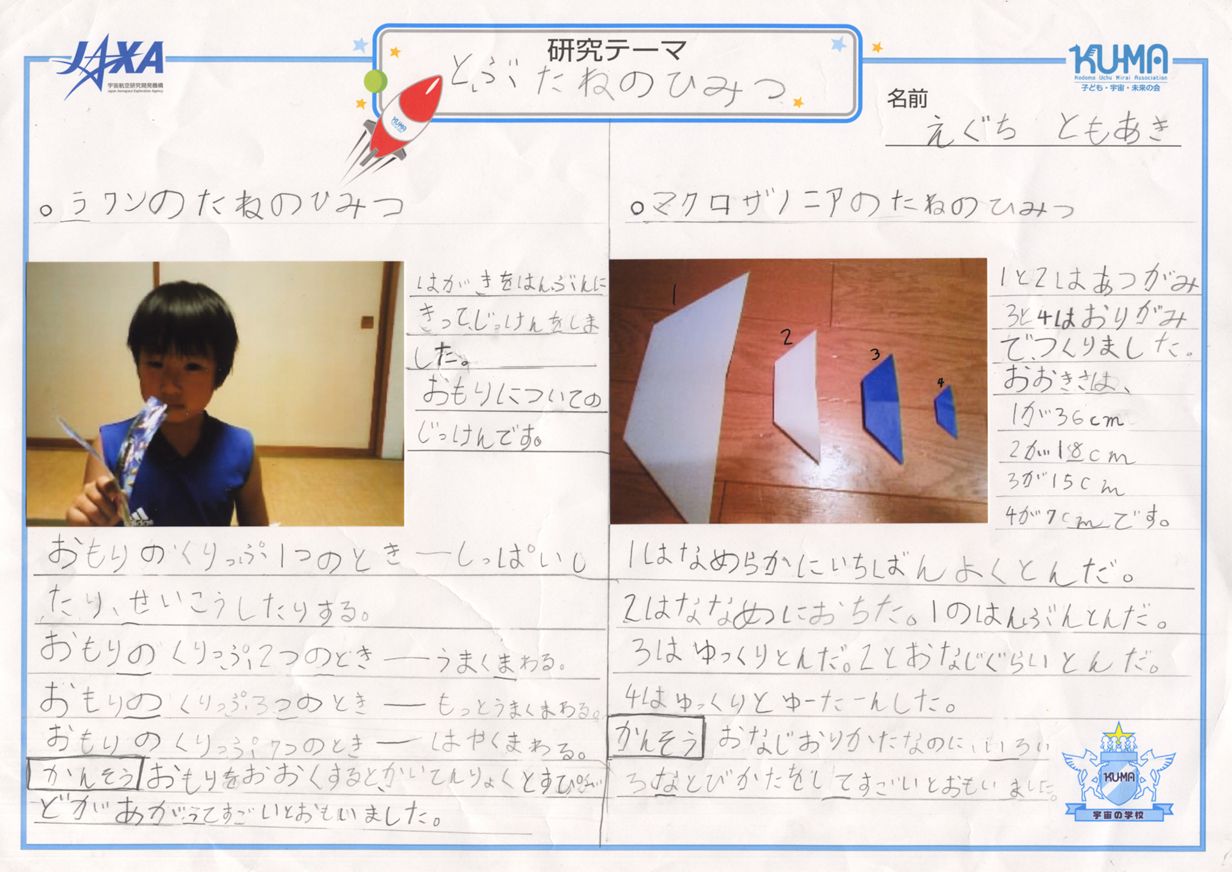 JAXA
宇宙航空研究開発機構
Japan Aerospace Exploration Agency
研究テーマ
とぶたねのひみつ
KUMA
KUMA
Kodomo Uchu Mirai Association
子ども・宇宙・未来の会
名前
えぐち ともあき
○ラワンのたねのひみつ
はがきをはんぶんに
きって、じっけんをしま
した。
おもりについての
じっけんです。
おもりのくりっぷ1つのとき―しっぱいし
たり、せいこうしたりする。
おもりのくりっぷ2つのとき―うまくまわる。
おもりのくりっぷ3つのとき―もっとうまくまわる。
おもりのくりっぷ7つのとき―はやくまわる。
かんそう おもりをおおくするとかいてんりょくとすぴ
どがあがってすごいとおもいました。
○マクロザノニアのたねのひみつ
1
2
3
4
1と2はあつがみ
3と4はおりがみ
で、つくりました。
おおきさは、
1が36cm
2が18cm
3が15cm
4が7cmです。
1はなめらかにいちばんよくとんだ。
2はななめにおちた。1のはんぶんとんだ。
3はゆっくりとんだ。2とおなじぐらいとんだ。
4はゆっくりとゆーたーんした。
かんそう おなじおりかたなのに、いろい
ろなとびかたをしてすごいとおもいました。
KUMA
宇宙の学校